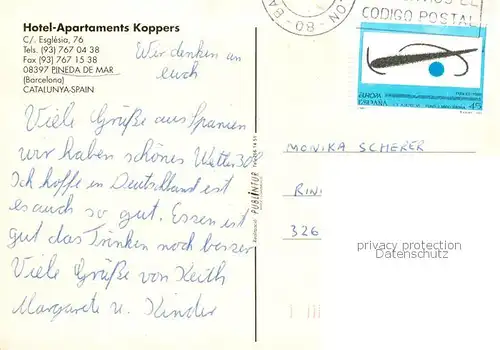 Hotel-Apartaments Koppers
C/. Església, 76
Tels. (93) 767 04 38
Fax (93) 767 15 38
08397 PINEDA DE MAR
(Barcelona)
CATALUNYA-SPAIN
Wir denken an
euch
Viele Grüße aus Spanien
wir haben schönes Wetter 30°
Ich hoffe in Deutschland ist
es auch so gut. Essen ist
gut das Trinken noch besser
Viele Grüße von Keith
Margarete u. Kinder
PUBLINTUR
CODIGO POSTAL
EUROPA
ESPAÑA
45
MONIKA SCHERER
RIN
326
privacy protection
Datenschutz